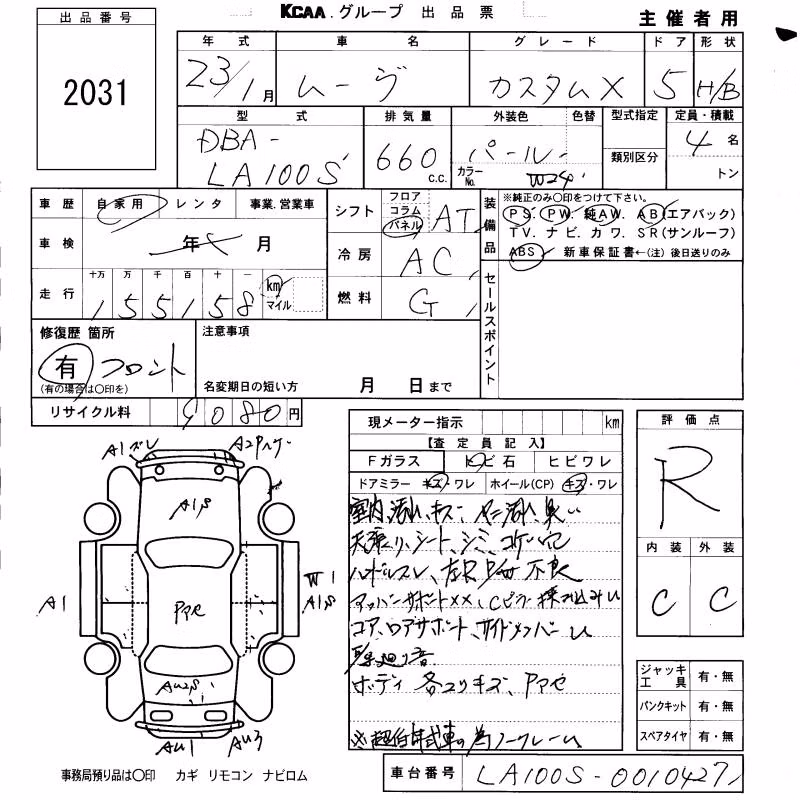 KCAA.グループ 出品票
主催者用
出品番号
2031
年式 車名 グレード ドア 形状
23/1月 ムーヴ カスタムX 5 H/B
型式 排気量 外装色 色替 型式指定 定員・積載
DBA-
LA100S 660 c.c. パール カラーNo. W24 類別区分 4名
トン
車歴 自家用 レンタ 事業.営業車
車検 年 月
走行 十万 万 千 百 十 一
155158 km マイル
シフト フロア コラム パネル AT
冷房 AC
燃料 G
装備品
※純正のみ○印をつけて下さい。
PS. PW. 純AW. AB(エアバック)
TV. ナビ. カワ. SR(サンルーフ)
ABS 新車保証書←(注) 後日送りのみ
セールスポイント
修復歴 箇所
有 フロント
(有の場合は○印を)
注意事項
名変期日の短い方 月 日まで
リサイクル料 9080円
現メーター指示 km
【査定員記入】
Fガラス トビ石 ヒビワレ
ドアミラー キズ・ワレ ホイール(CP) キズ・ワレ
室内汚れ、キズ、ヤニ汚れ、臭い
天張り、シート、シミ、コゲ穴
ハンドルスレ、左R 不良
アッパーサポート××、Cピラー
コア、ロアサポート、サイドメンバー
音
ボディ 各コリキズ、
※超低年式車の為ノークレーム
評価点
R
内装 外装
C C
ジャッキ工具 有・無
パンクキット 有・無
スペアタイヤ 有・無
A1
A2
A1,S
A1
W1
A1,S
AU2,S
AU1
AU3
事務局預り品は○印 カギ リモコン ナビロム
車台番号 LA100S-0010427